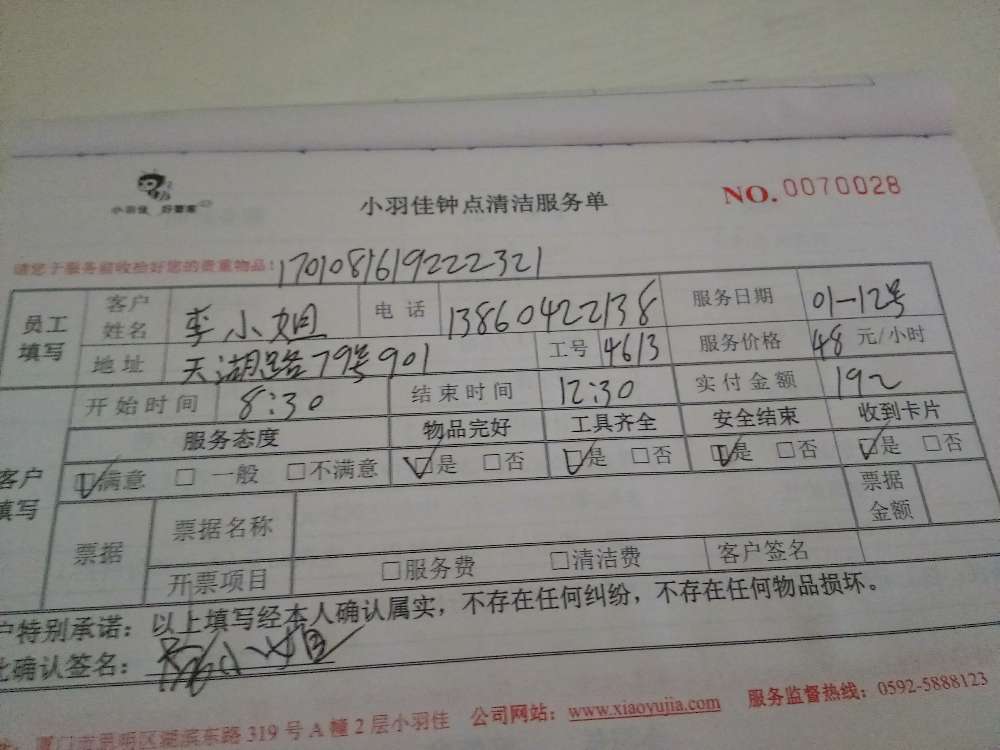 小羽佳 好管家
小羽佳钟点清洁服务单
NO.0070028
请您于服务前收拾好您的贵重物品! 170108161922232​1
员工填写 客户姓名 李小姐 电话 13860422138 服务日期 01-12号
地址 天湖路79号901 工号 4613 服务价格 48 元/小时
开始时间 8:30 结束时间 12:30 实付金额 192
服务态度 物品完好 工具齐全 安全结束 收到卡片
客户填写 ☑满意 □一般 □不满意 ☑是 □否 ☑是 □否 ☑是 □否 ☑是 □否
票据 票据名称 票据金额
开票项目 □服务费 □清洁费 客户签名
户特别承诺:以上填写经本人确认属实,不存在任何纠纷,不存在任何物品损坏。
此确认签名:
厦门市思明区湖滨东路319号A幢2层小羽佳 公司网站:www.xiaoyujia.com 服务监督热线:0592-5888123